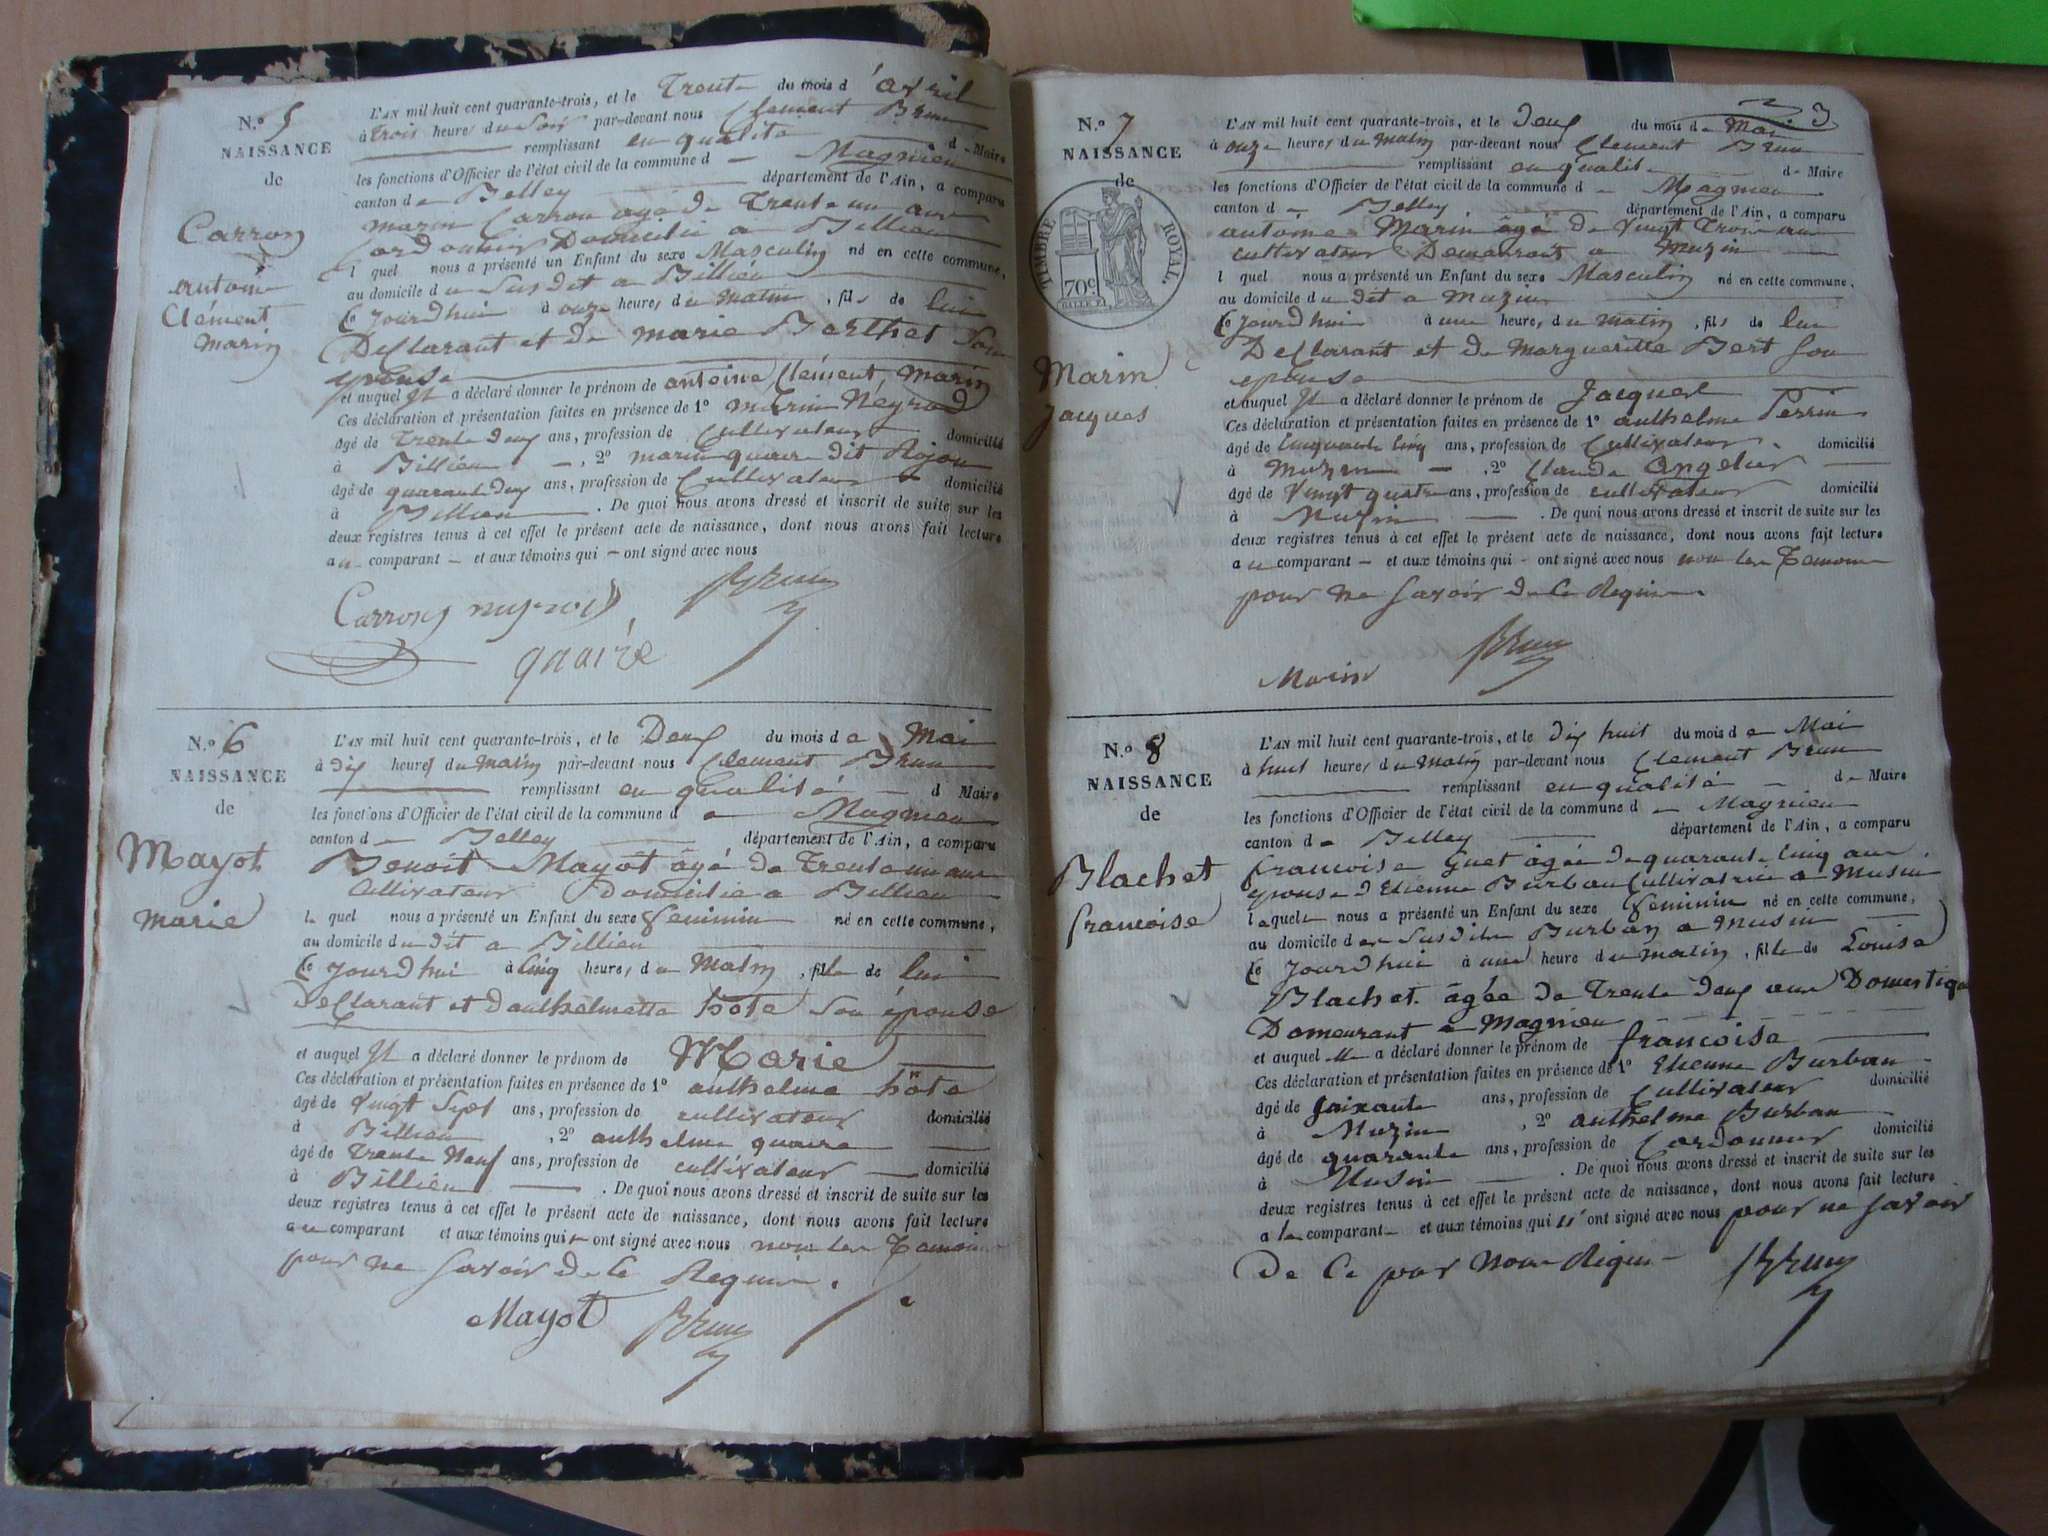 N.º 5
NAISSANCE
de
Carron
antoine
Clément
marin
L'AN mil huit cent quarante-trois, et le Trente du mois d'avril
à trois heures du soir par-devant nous Clement Brun
remplissant en qualité d Maire
les fonctions d'Officier de l'état civil de la commune d Magnieu
canton de Belley département de l'Ain, a comparu
marin Carron agé de Trente un ans
Cordonnier Domicilié a Billieu
l quel nous a présenté un Enfant du sexe Masculin né en cette commune,
au domicile du Susdit a Billieu
Ce jourdhui à onze heures du matin, fils de lui
Declarant et de marie Berthet Son
epouse
et auquel Il a déclaré donner le prénom de antoine Clément, Marin
Ces déclaration et présentation faites en présence de 1º marin Neyrod
âgé de Trente Deux ans, profession de Cultivateur domicilié
à Billieu, 2º marin quaire dit Rojon
âgé de quarante Deux ans, profession de Cultivateur domicilié
à Billieu. De quoi nous avons dressé et inscrit de suite sur les
deux registres tenus à cet effet le présent acte de naissance, dont nous avons fait lecture
au comparant et aux témoins qui ont signé avec nous
Carron neyrod Brun
quaire
N.º 6
NAISSANCE
de
Mayot
marie
L'AN mil huit cent quarante-trois, et le Deux du mois de Mai
à dix heures du Matin par-devant nous Clement Brun
remplissant en qualité d Maire
les fonctions d'Officier de l'état civil de la commune d e Magnieu
canton de Belley département de l'Ain, a comparu
Benoit Mayot âgé de Trente un ans
Cultivateur Domicilié a Billieu
le quel nous a présenté un Enfant du sexe feminin né en cette commune,
au domicile du dit a Billieu
Ce jourdhui à Cinq heures du Matin, fille de lui
Declarant et d'anthelmette hôte Son épouse
et auquel Il a déclaré donner le prénom de Marie
Ces déclaration et présentation faites en présence de 1º anthelme hôte
âgé de Vingt Sept ans, profession de cultivateur domicilié
à Billieu, 2º anthelme quaire
âgé de Trente Neuf ans, profession de cultivateur domicilié
à Billieu. De quoi nous avons dressé et inscrit de suite sur les
deux registres tenus à cet effet le présent acte de naissance, dont nous avons fait lecture
au comparant et aux témoins qui ont signé avec nous non les Temoins
pour ne Savoir de Ce Requis.
Mayot Brun
3
N.º 7
NAISSANCE
de
TIMBRE ROYAL.
70c
Marin
Jacques
L'AN mil huit cent quarante-trois, et le Deux du mois de Mai
à onze heures du Matin par-devant nous Clement Brun
remplissant en qualité de Maire
les fonctions d'Officier de l'état civil de la commune d e Magnieu
canton d e Belley département de l'Ain, a comparu
antoine Marin âgé de Vingt Trois ans
cultivateur Demeurant a Muzin
l quel nous a présenté un Enfant du sexe Masculin né en cette commune,
au domicile du dit a Muzin
Ce jourdhui à une heure, du matin, fils de lui
Declarant et de Margueritte Bert Son
epouse
et auquel Il a déclaré donner le prénom de Jacques
Ces déclaration et présentation faites en présence de 1º anthelme Perrin
âgé de Cinquante Cinq ans, profession de Cultivateur domicilié
à Muzin, 2º Claude Angelier
âgé de Vingt quatre ans, profession de cultivateur domicilié
à Muzin. De quoi nous avons dressé et inscrit de suite sur les
deux registres tenus à cet effet le présent acte de naissance, dont nous avons fait lecture
au comparant et aux témoins qui ont signé avec nous non les Temoins
pour ne Savoir de Ce Requis.
Marin Brun
N.º 8
NAISSANCE
de
Blachet
francoise
L'AN mil huit cent quarante-trois, et le dix huit du mois de Mai
à huit heures du Matin par-devant nous Clement Brun
remplissant en qualité de Maire
les fonctions d'Officier de l'état civil de la commune d e Magnieu
canton de Belley département de l'Ain, a comparu
francoise Guet âgée de quarante Cinq ans
epouse d'Etienne Burban Cultivatrice a Musin
laquelle nous a présenté un Enfant du sexe feminin né en cette commune,
au domicile des Susdits Burban a Musin
Ce jourdhui à une heure du matin, fille de Louise
Blachet âgée de Trente deux ans Domestique
Demeurant a Magnieu
et auquel elle a déclaré donner le prénom de francoise
Ces déclaration et présentation faites en présence de 1º Etienne Burban
âgé de Soixante ans, profession de Cultivateur domicilié
à Muzin, 2º anthelme Burban
âgé de quarante ans, profession de Cordonnier domicilié
à Musin. De quoi nous avons dressé et inscrit de suite sur les
deux registres tenus à cet effet le présent acte de naissance, dont nous avons fait lecture
a la comparant et aux témoins qui n'ont signé avec nous pour ne Savoir
De Ce par Nous Requis Brun